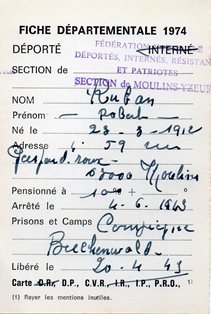 FICHE DÉPARTEMENTALE 1974
DÉPORTÉ INTERNÉ
FÉDÉRATION
DÉPORTÉS, INTERNÉS, RÉSISTANTS
SECTION de ET PATRIOTES
SECTION de MOULINS-YZEURE
NOM Ruban
Prénom - Robert -
Né le 23-3-1912
Adresse 59 rue
Gaspard roux - 03000 Moulins
Pensionné à 100 +
Arrêté le 4-6-1943
Prisons et Camps Compiègne
Buchenwald -
Libéré le 20-4 45
Carte D.R., D.P., C.V.R., I.R., I.P., P.R., 1)
(1) Rayer les mentions inutiles.